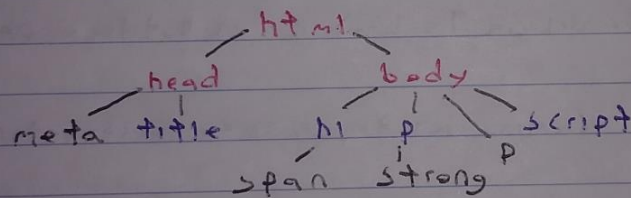 html
head body
meta title h1 p p script
span strong